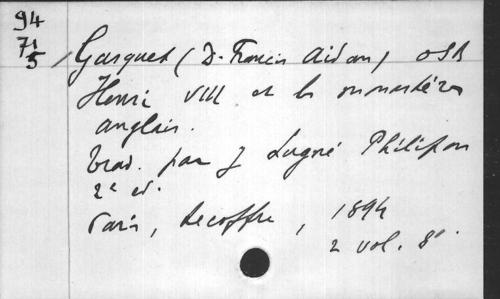 94
71
5
Gasquet (D. Francis Aidan) OSB
Henri VIII et les monastères
anglais.
trad. par J Lugné Philipon
2e éd.
Paris, Lecoffre, 1894
2 vol. 8°